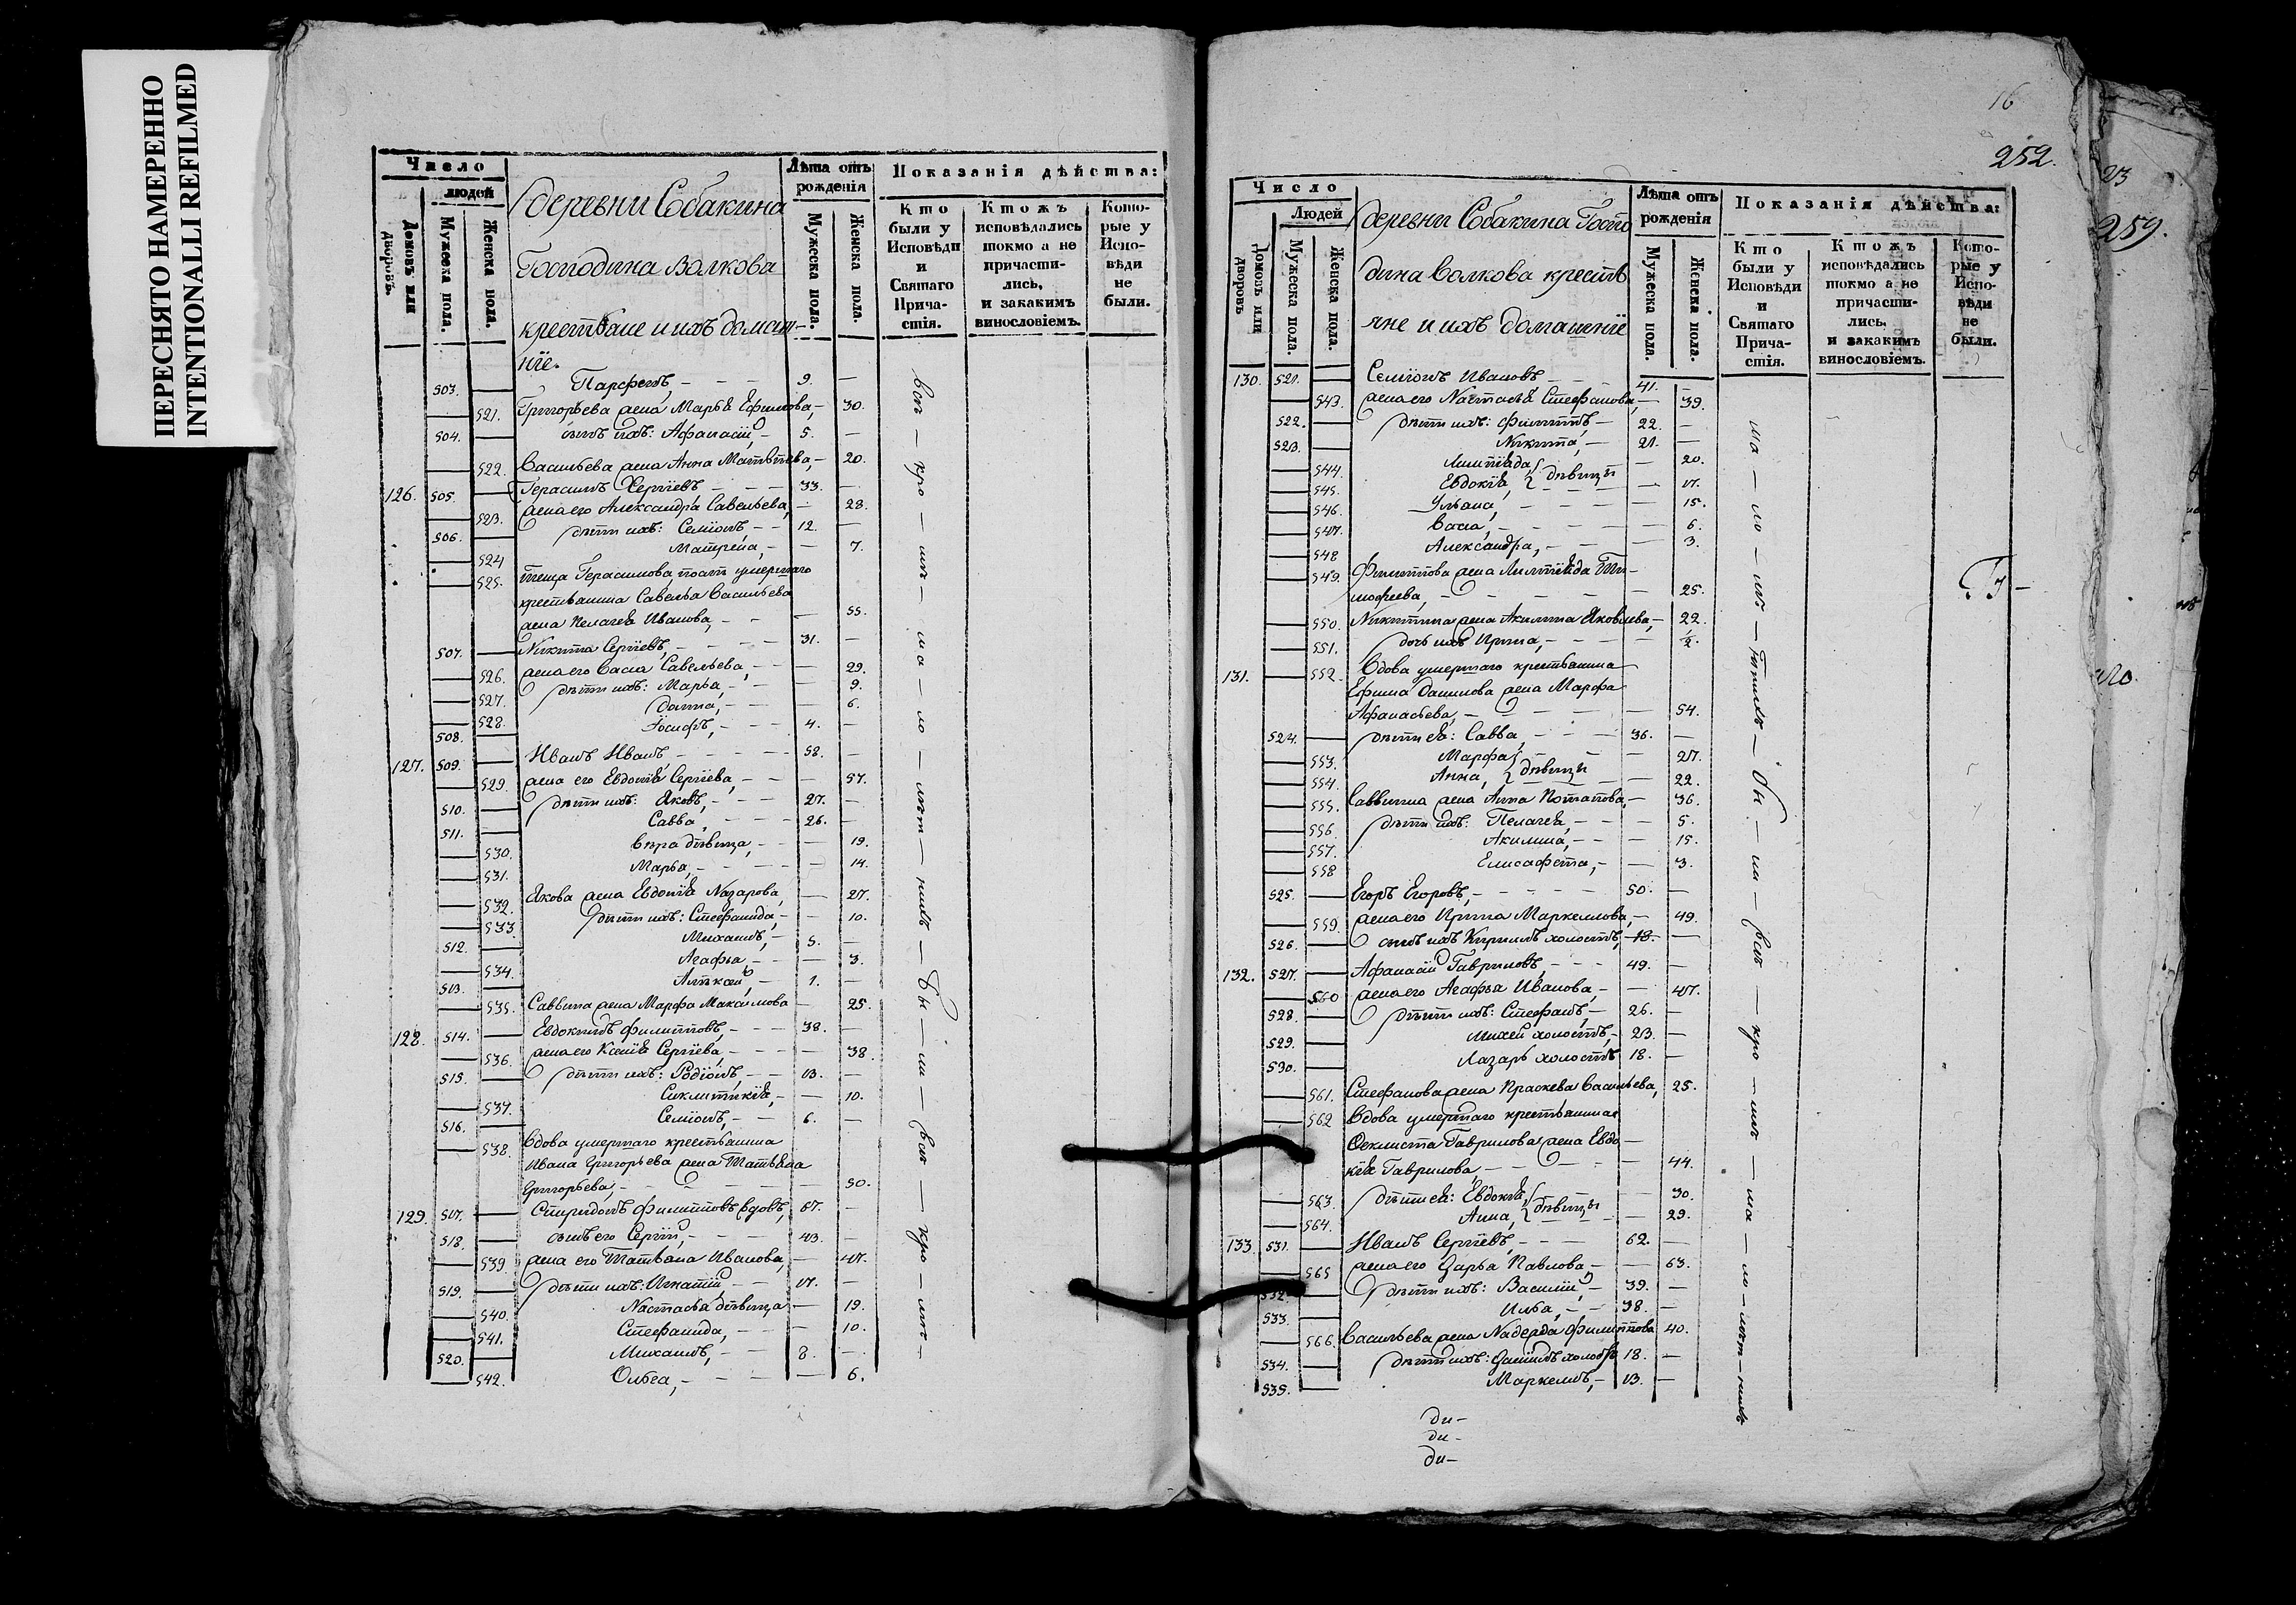 ПЕРЕСНЯТО НАМЕРЕННО
INTENTIONALLI REFILMED
Число
людей
Домовъ или дворовъ.
Мужеска пола.
Женска пола.
деревни Собакина
Господина Волкова
крестьяне и ихъ домаш-
ніе.
Лѣта отъ рожденія
Мужеска пола.
Женска пола.
Показанія дѣйства:
Кто были у Исповѣди и Святаго Прича-стія.
Ктожъ исповѣдались токмо а не причасти-лись, и закакимъ винословіемъ.
Кото-рые у Испо-вѣди не были.
503. Парфенъ, 9.
521. Григорьева жена Марья Ефимова, 30.
504. сынъ ихъ: Афанасій, 5.
522. Васильева жена Анна Матвѣева, 20.
126. 505. Герасимъ Сергіевъ 33.
523. жена его Александра Савельева, 28.
506. дѣти ихъ: Семіонъ, 12.
524 Матрена, 7.
525. теща Герасимова, умершаго
крестьянина Савелья Васильева
жена Пелагея Иванова, 55.
507. Никита Сергіевъ, 31.
526. жена его Васса Савельева, 29.
527. дѣти ихъ: Марья, 9.
528. 6.
508. Іосифъ, 4.
127. 509. Иванъ Ивановъ, 58.
529. жена его Евдокія Сергіева, 57.
510. дѣти ихъ: Яковъ, 27.
511. Савва, 26.
530. Вѣра дѣвица, 19.
531. Марья, 14.
532. Якова жена Евдокія Назарова, 27.
533 дѣти ихъ: Стефанида, 10.
512. Михаилъ, 5.
534. Агафья 3.
513. Алѣксѣй, 1.
535. Саввина жена Марфа Максимова 25.
128. 514. Евдокимъ Филипповъ, 38.
536. жена его Ксенія Сергіева, 38.
515. дѣти ихъ: Родіонъ, 13.
537. Сиклитикія, 10.
516. Семіонъ, 6.
538. Вдова умершаго крестьянина
Ивана Григорьева жена Татьяна
Григорьева, 50.
129. 517. Спиридонъ Филипповъ вдовъ, 67.
518. сынъ его Сергій, 43.
539 жена его Татьяна Иванова, 47.
519. дѣти ихъ: Игнатій, 17.
540. Настасья дѣвица 19.
541. Стефанида, 10.
520. Михаилъ, 8.
542. Ольга, 6.
16
252.
23
259.
Число
Людей
Домовъ или дворовъ
Мужеска пола.
Женска пола.
деревни Собакина Госпо
дина Волкова кресть
яне и ихъ домашніе
Лѣта отъ рожденія
Мужеска пола.
Женска пола.
Показанія дѣйства:
Кто были у Исповѣди и Святаго Прича-стія.
Ктожъ исповѣдались токмо а не причасти-лись, и закакимъ винословіемъ.
Кото-рые у Испо-вѣди не были.
130. 521. Семіонъ Ивановъ 41.
543. жена его Настасья Стефанова, 39.
522. дѣти ихъ: Филиппъ, 22.
523. Никита, 21.
544. 20.
545. Евдокія, дѣвицы 17.
546. Ульяна, 15.
547. Васса, 6.
548 Александра, 3.
549. Филиппова жена Ти-
мофеева, 25.
550. Никитина жена Акилина Яковлева, 22.
551. дочь ихъ Ирина, 1/2.
131. 552. Вдова умершаго крестьянина
Ефима Данилова жена Марфа
Афанасьева, 54.
524. дѣти ея: Савва, 36.
553. Марфа 27.
554. Анна, дѣвицы 22.
555. Саввина жена Анна Потапова 36.
556 дѣти ихъ: Пелагея, 5.
557. Акилина, 15.
558 Елисафета, 3.
525. Егоръ Егоровъ, 50.
559. жена его Ирина Маркеллова, 49.
526. сынъ ихъ Кириллъ холостъ, 18.
132. 527. Афанасій Гавриловъ, 49.
560 жена его Агафья Иванова, 47.
528. дѣти ихъ: Стефанъ, 26.
529. Михей холостъ, 23.
530. Лазарь холостъ 18.
561. Стефанова жена Праскева Васильева, 25.
562 Вдова умершаго крестьянина
Феклиста Гаврилова жена Евдо
кія Гаврилова 44.
563 дѣти ея: Евдокія, 30.
564. Анна, дѣвицы 29.
133 531. Иванъ Сергіевъ, 62.
565 жена его Дарья Павлова 63.
532. дѣти ихъ: Василій, 39.
533. Илья, 38.
566. Васильева жена Надежда Филиппова 40.
534. дѣти ихъ: Даніилъ холостъ 18.
535. Маркеллъ, 13.
ди-
ди-
ди-